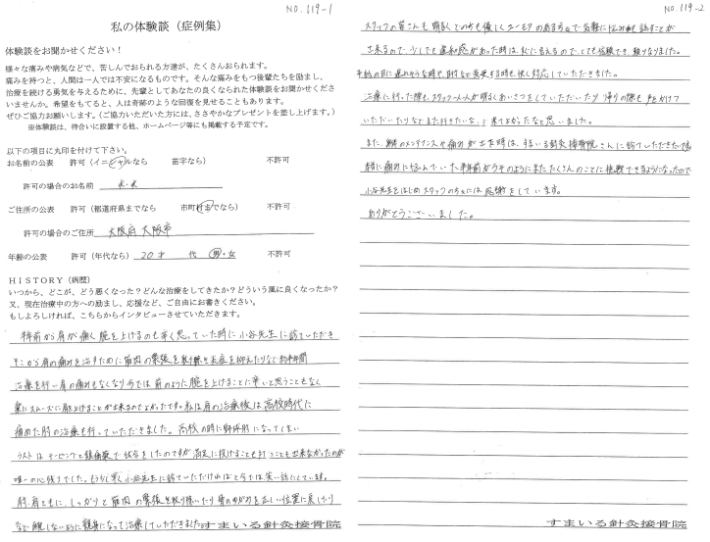 NO.119-1
私の体験談（症例集）
体験談をお聞かせください！
様々な痛みや病気などで、苦しんでおられる方達が、たくさんおられます。
痛みを持つと、人間は一人では不安になるものです。そんな痛みをもつ後輩たちを励まし、
治療を続ける勇気を与えるために、先輩としてあなたの良くなられた体験談をお聞かせくださ
いませんか。希望をもてると、人は奇跡のような回復を見せることもあります。
ぜひご協力お願いします。（ご協力いただいた方には、ささやかなプレゼントを差し上げます。）
※体験談は、待合いに設置する他、ホームページ等にも掲載する予定です。
以下の項目に丸印を付けて下さい。
お名前の公表 許可（イニシャルなら 苗字なら） 不許可
許可の場合のお名前 K.K
ご住所の公表 許可（都道府県までなら 市町村までなら） 不許可
許可の場合のご住所 大阪府 大阪市
年齢の公表 許可（年代なら） 20才 代 男・女 不許可
ＨＩＳＴＯＲＹ（病歴）
いつから、どこが、どう悪くなった？どんな治療をしてきたか？どういう風に良くなったか？
又、現在治療中の方への励まし、応援など、ご自由にお書きください。
もしよろしければ、こちらからインタビューさせていただきます。
数年前から肩が痛く腕を上げるのも辛く思っていた時に小谷先生に診ていただき
そこから肩の痛みを治すために筋肉の緊張を取り除き炎症を抑えたりなど約半年間
治療を行い肩の痛みもなくなり今では前のように腕を上げることに辛いと思うこともなく
楽にスムーズに肩を上げることが出来るのでよかったです。私は肩の治療後は高校時代に
痛めた肘の治療も行っていただきました。高校の時に野球肘になってしまい
ラストはテーピングと鎮痛薬で試合をしたのですが満足に投げることも打つことも出来なかったのが
唯一の心残りでした。もう少し早く小谷先生に診ていただければと今では笑い話にしています。
肘、肩ともに、しっかりと筋肉の緊張を取り除いたり骨のゆがみを正しい位置に戻したり
など無理しないように親身になって治療していただきました。
すまいる針灸接骨院
NO.119-2
スタッフの皆さんも明るくとても優しくユーモアのある方なので気軽に悩み事も話すことが
出来るので、少しでも違和感があった時は、すぐに言えるので、とても信頼でき頼りなりました。
予約の日に遅れそうな時も、日付など変更する時も快く対応していただきました。
治療に行った際も、スタッフ一人一人が明るくあいさつをしていただいたり帰りの際も声をかけて
いただいたりなどまた行きたいな、と来てよかったなと思いました。
また、身体のメンテナンスや痛みが出た時は、すまいる針灸接骨院さんに診ていただきたいです。
肩に痛みに悩んでいた半年前がうそのようにまた、たくさんのことに挑戦できるようになったので
小谷先生をはじめスタッフの方々には感謝をしています。
ありがとうございました。
すまいる針灸接骨院